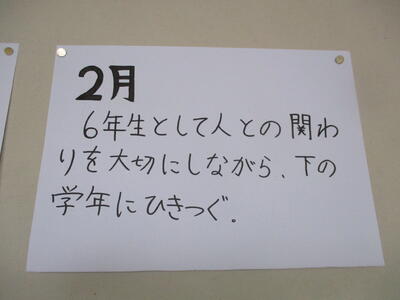 2月
6年生として人との関わ
りを大切にしながら、下の
学年にひきつぐ。